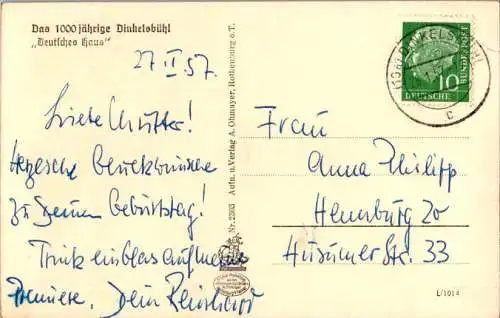 Das 1000 jährige Dinkelsbühl
„Deutsches Haus“
27.II.57.
Liebe Mutter!
Herzliche Glückwünsche
zu Deinem Geburtstag!
Trink ein Glas auf meine
Premiere. Dein
Aufn. u. Verlag A. Ohmayer, Rothenburg o.T.
Nr. 2293
DINKELSBÜHL
c
10
DEUTSCHE
BUNDESPOST
Frau
Anna Philipp
Hamburg 20
Husumer Str. 33
L/1014